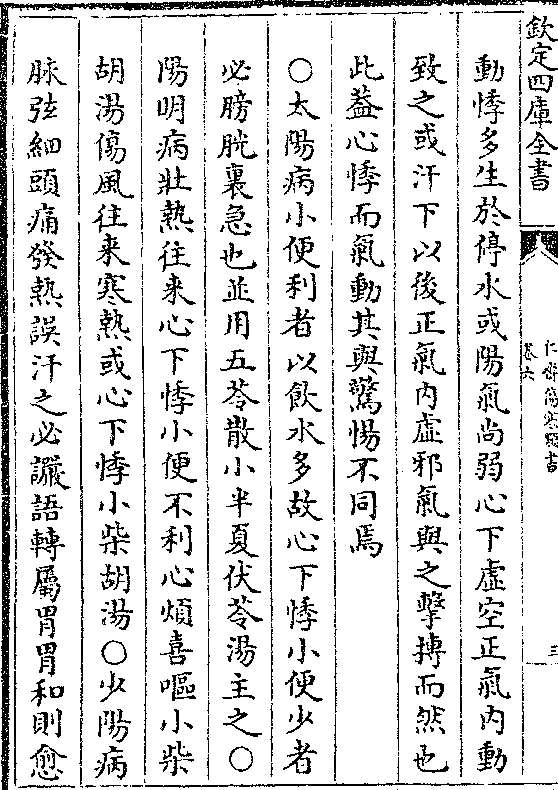 欽定四庫全書
仁齋傷寒類書
卷六
三
動悸多生於停水或陽氣尚弱心下虚空正氣内動
致之或汗下以後正氣内虚邪氣與之擊搏而然也
此葢心悸而氣動其與驚惕不同焉
○太陽病小便利者以飲水多故心下悸小便少者
必膀胱裏急也並用五苓散小半夏伏苓湯主之○
陽明病壯熱往来心下悸小便不利心煩喜嘔小柴
胡湯傷風往来寒熱或心下悸小柴胡湯○少陽病
脉弦細頭痛發熱誤汗之必讝語轉屬胃胃和則愈